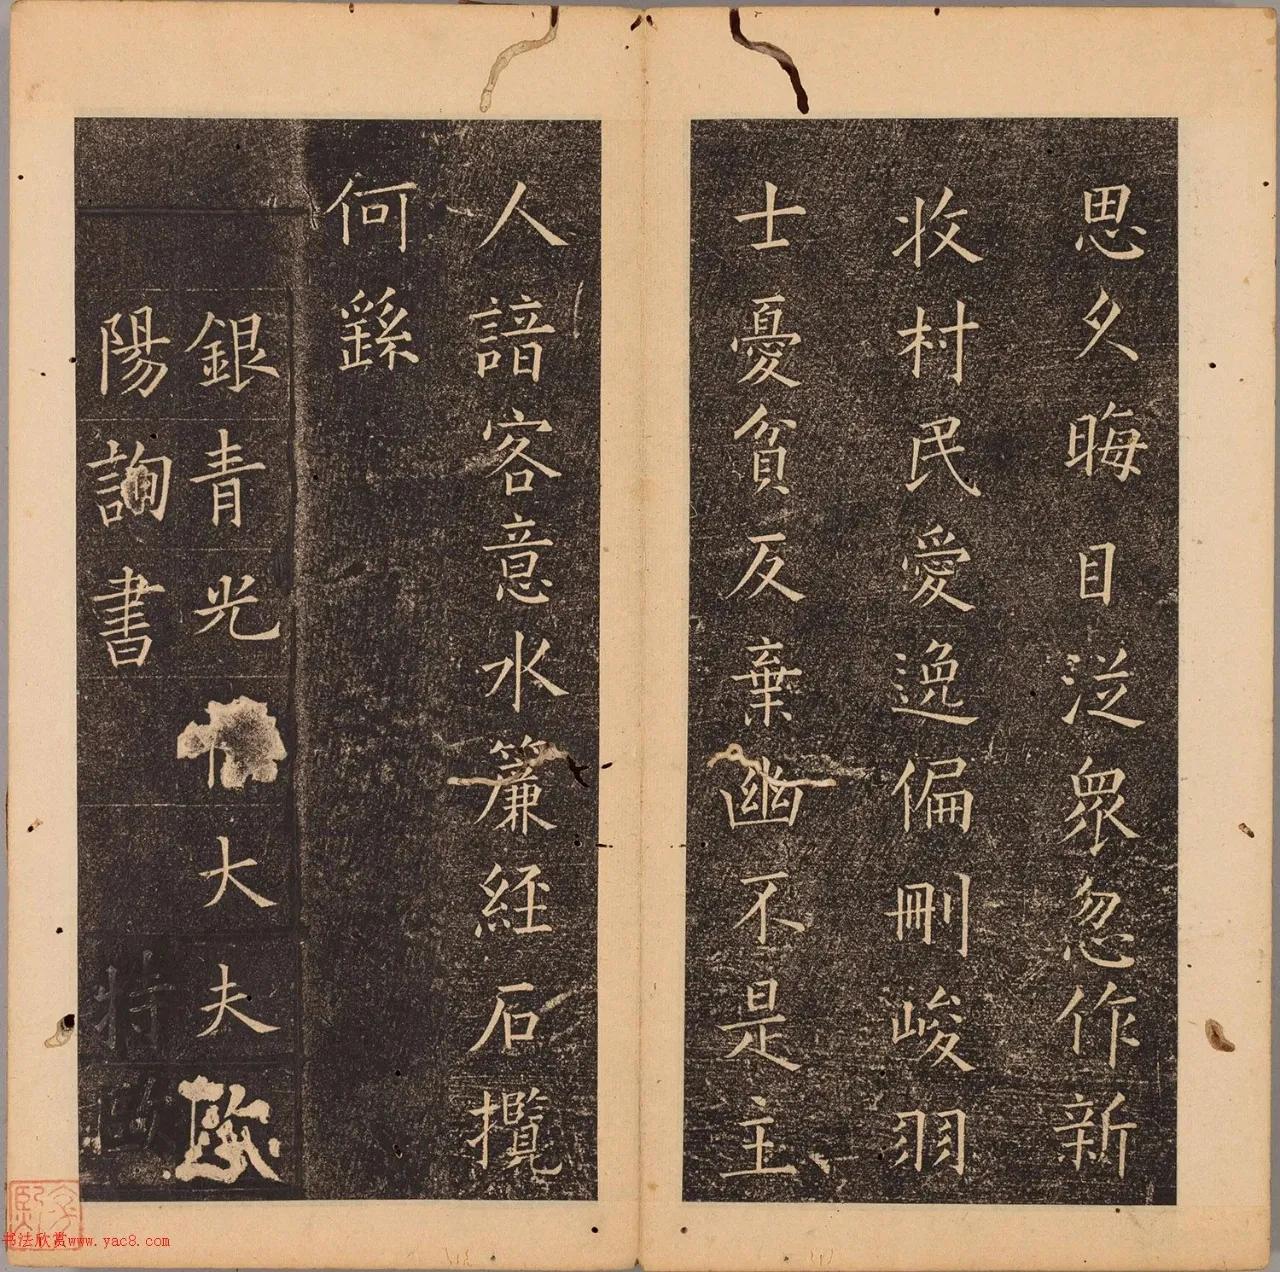 思久晦目泛眾忽作新
收村民愛逸偏刪峻羽
士憂貧反棄幽不是主
人諳客意水簾經石攬
何繇
銀青光大夫歐
陽詢書
书法欣赏www.yac8.com